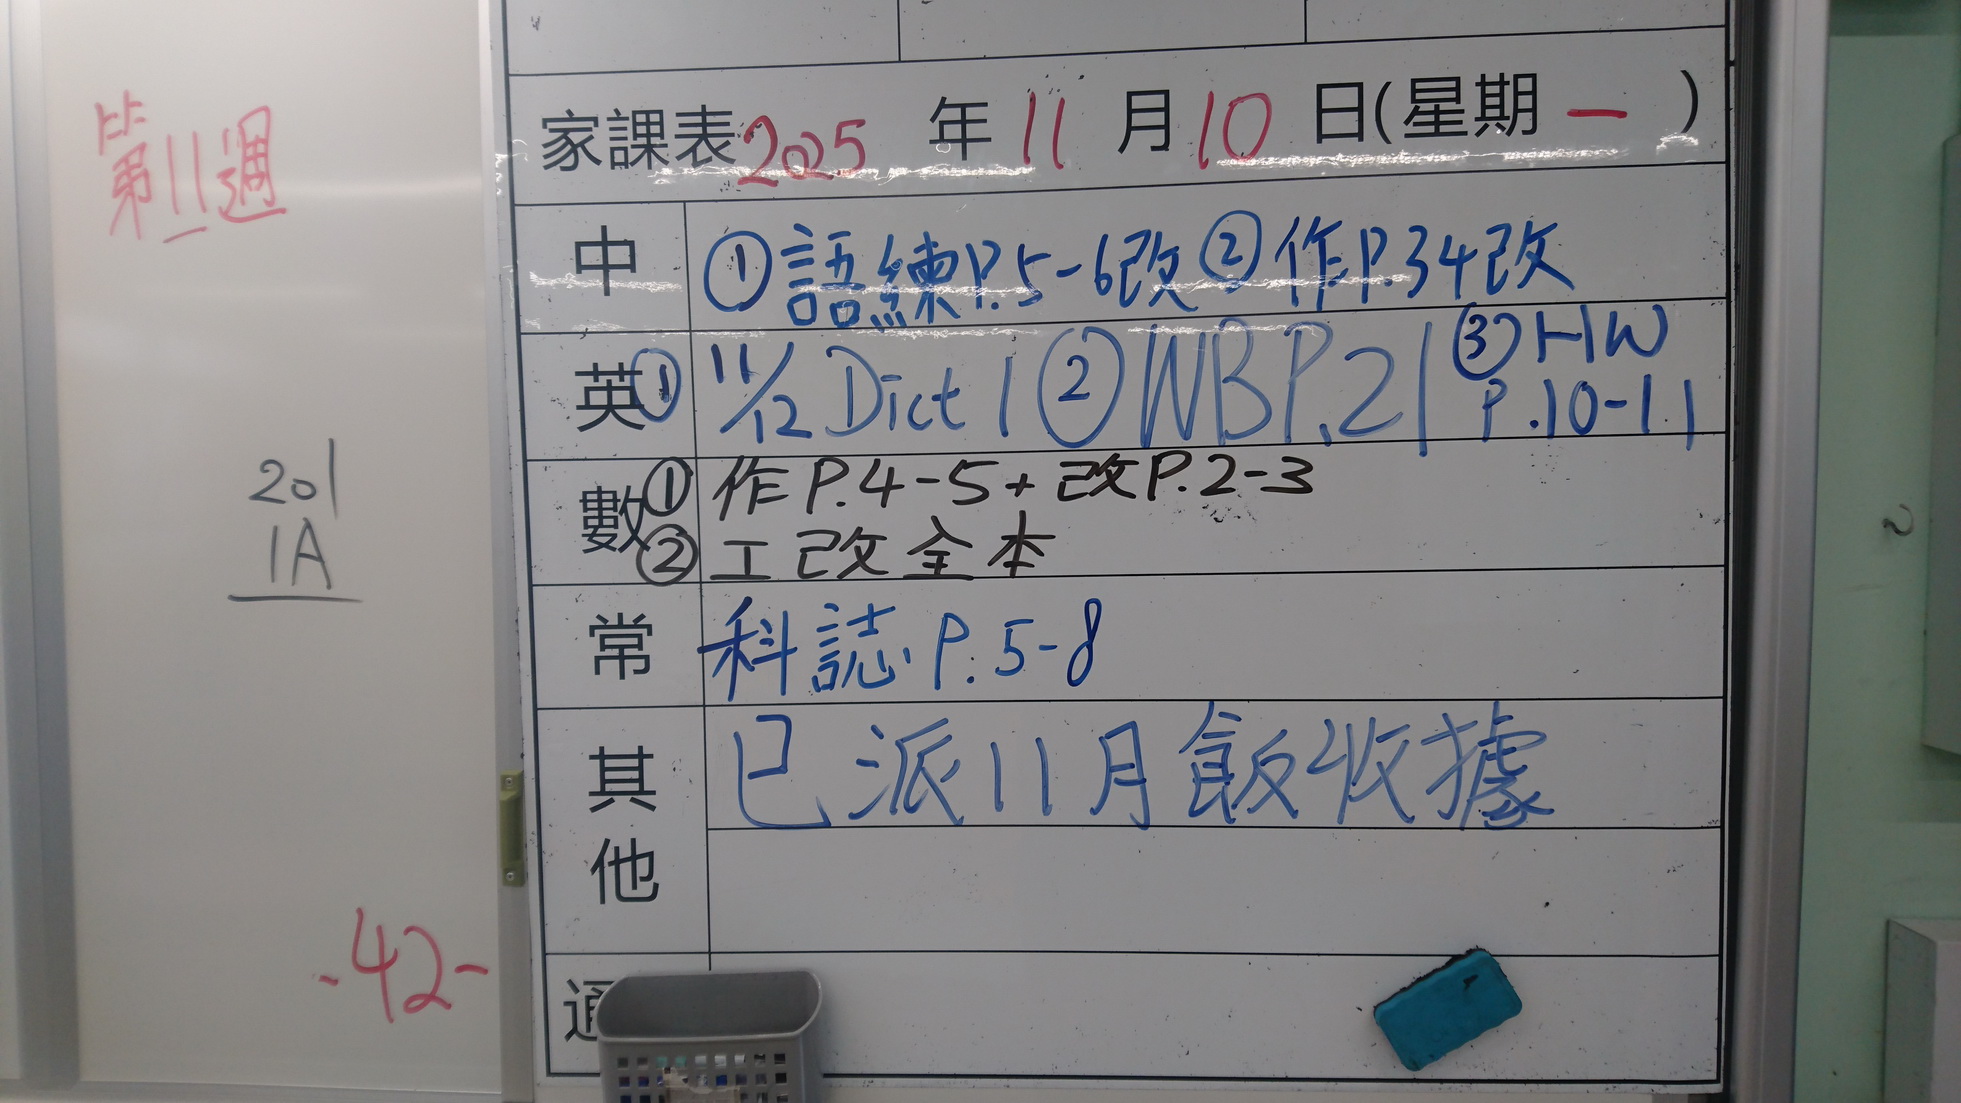 第11週
201
1A
-42-
家課表2025年11月10日(星期一)
中 ①語練P.5-6改②作P.34改
英 ①11/12 Dict 1 ②WB P.21 ③HW P.10-11
數 ①作P.4-5+改P.2-3
②工改全本
常 科誌P.5-8
其他 已派11月飯收據